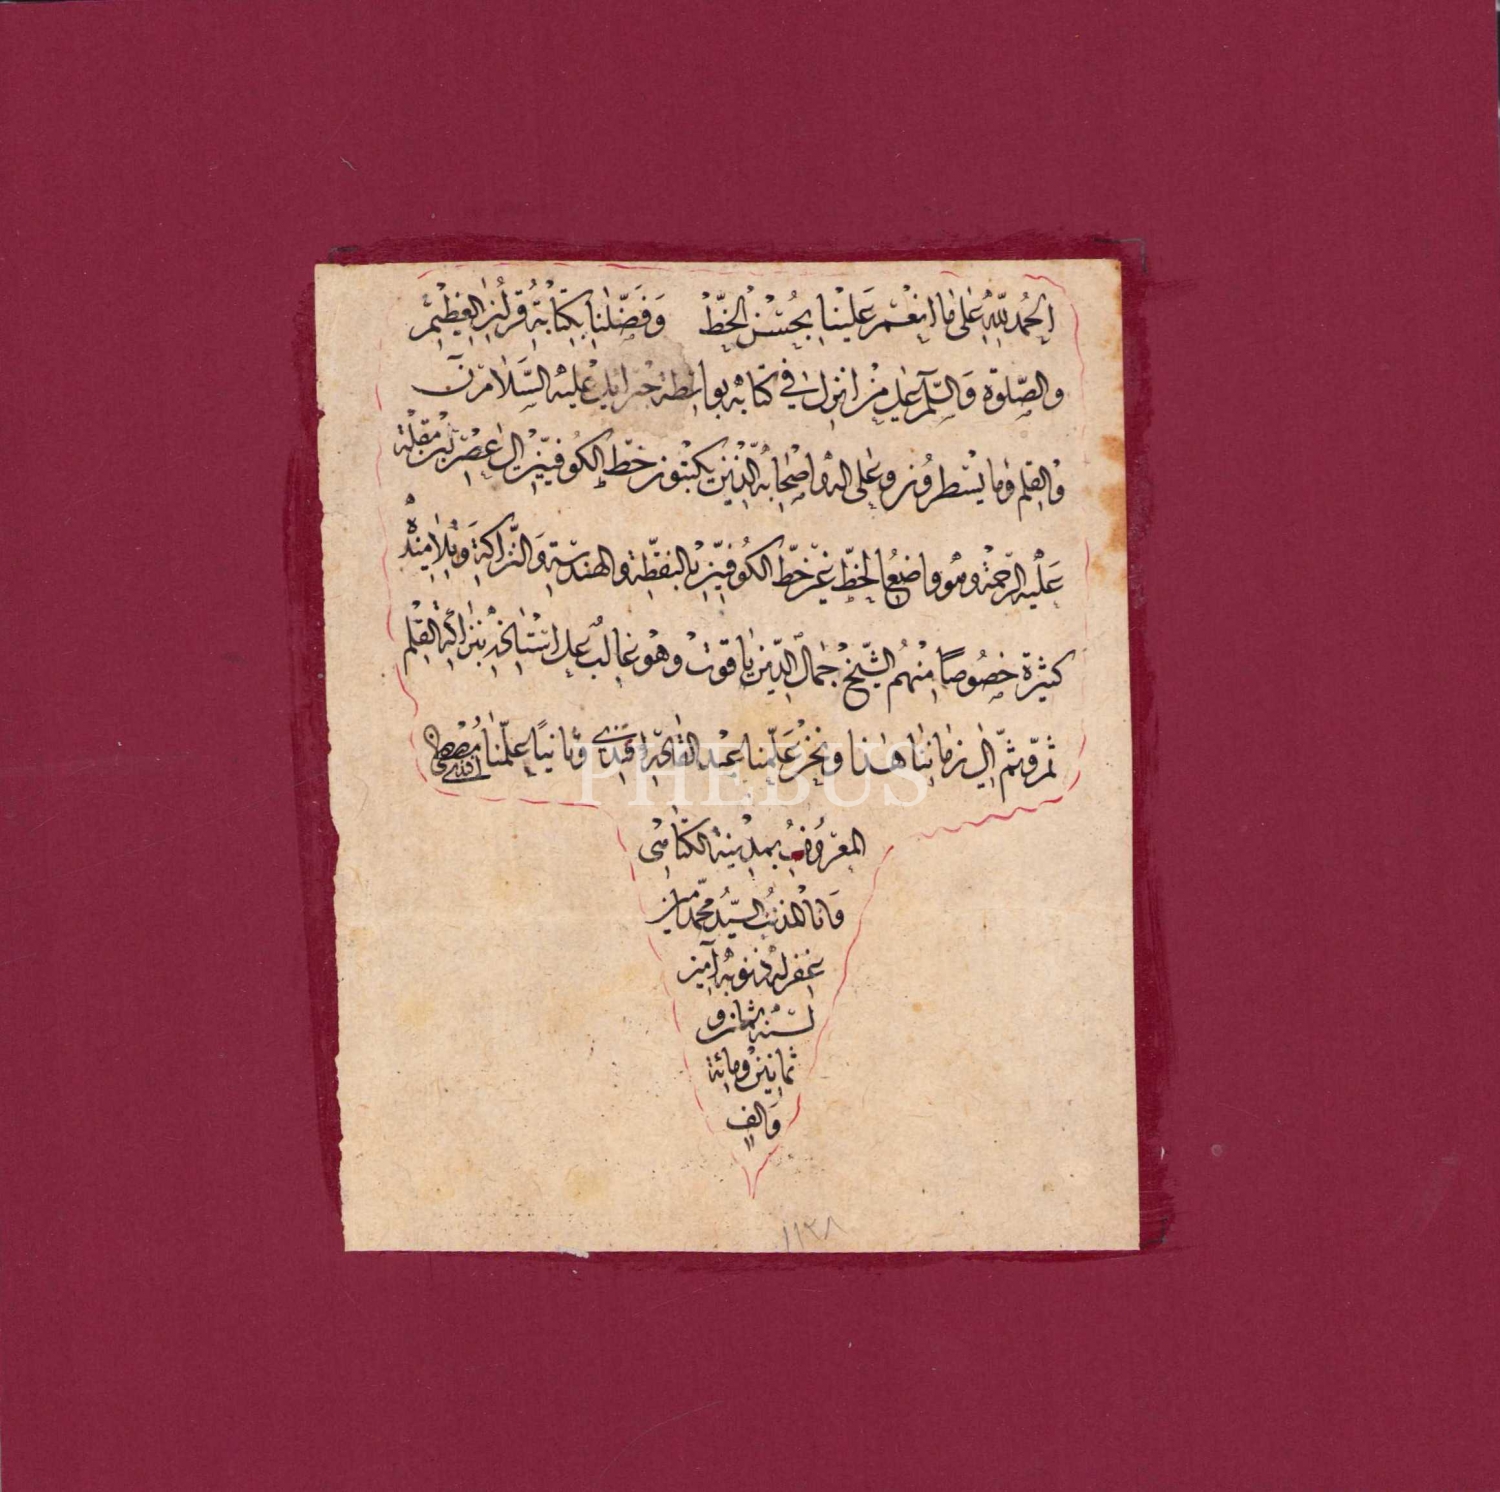 الحمد لله على ما انعم علينا بحسن الخط وفضلنا بكتابة قرآن العظيم
والصلوة والسلام على من انزل في كتابه بواسطة جبرائيل عليه السلام ن
والقلم وما يسطرون وعلى اله واصحابه الذين يكتبون خط الكوفيين الى عصر ابن مقلة
عليه الرحمة وهو واضع الخط غير خط الكوفيين بالنقطة والهندسة والنزاكة وتلاميذه
كثيرة خصوصا منهم الشيخ جمال الدين ياقوت وهو غالب على استاخذ بنزاكة القلم
ثم وثم الى زماننا هذا ونحن علمنا عبد القادر افندى وثانيا علمنا مصطفى افندى
المعروف بمدينة
وانا المذنب السيد محمد
غفر له ذنوبه آمين
لسنة ثمان و
ثمانين ومائة
والف
PHEBUS